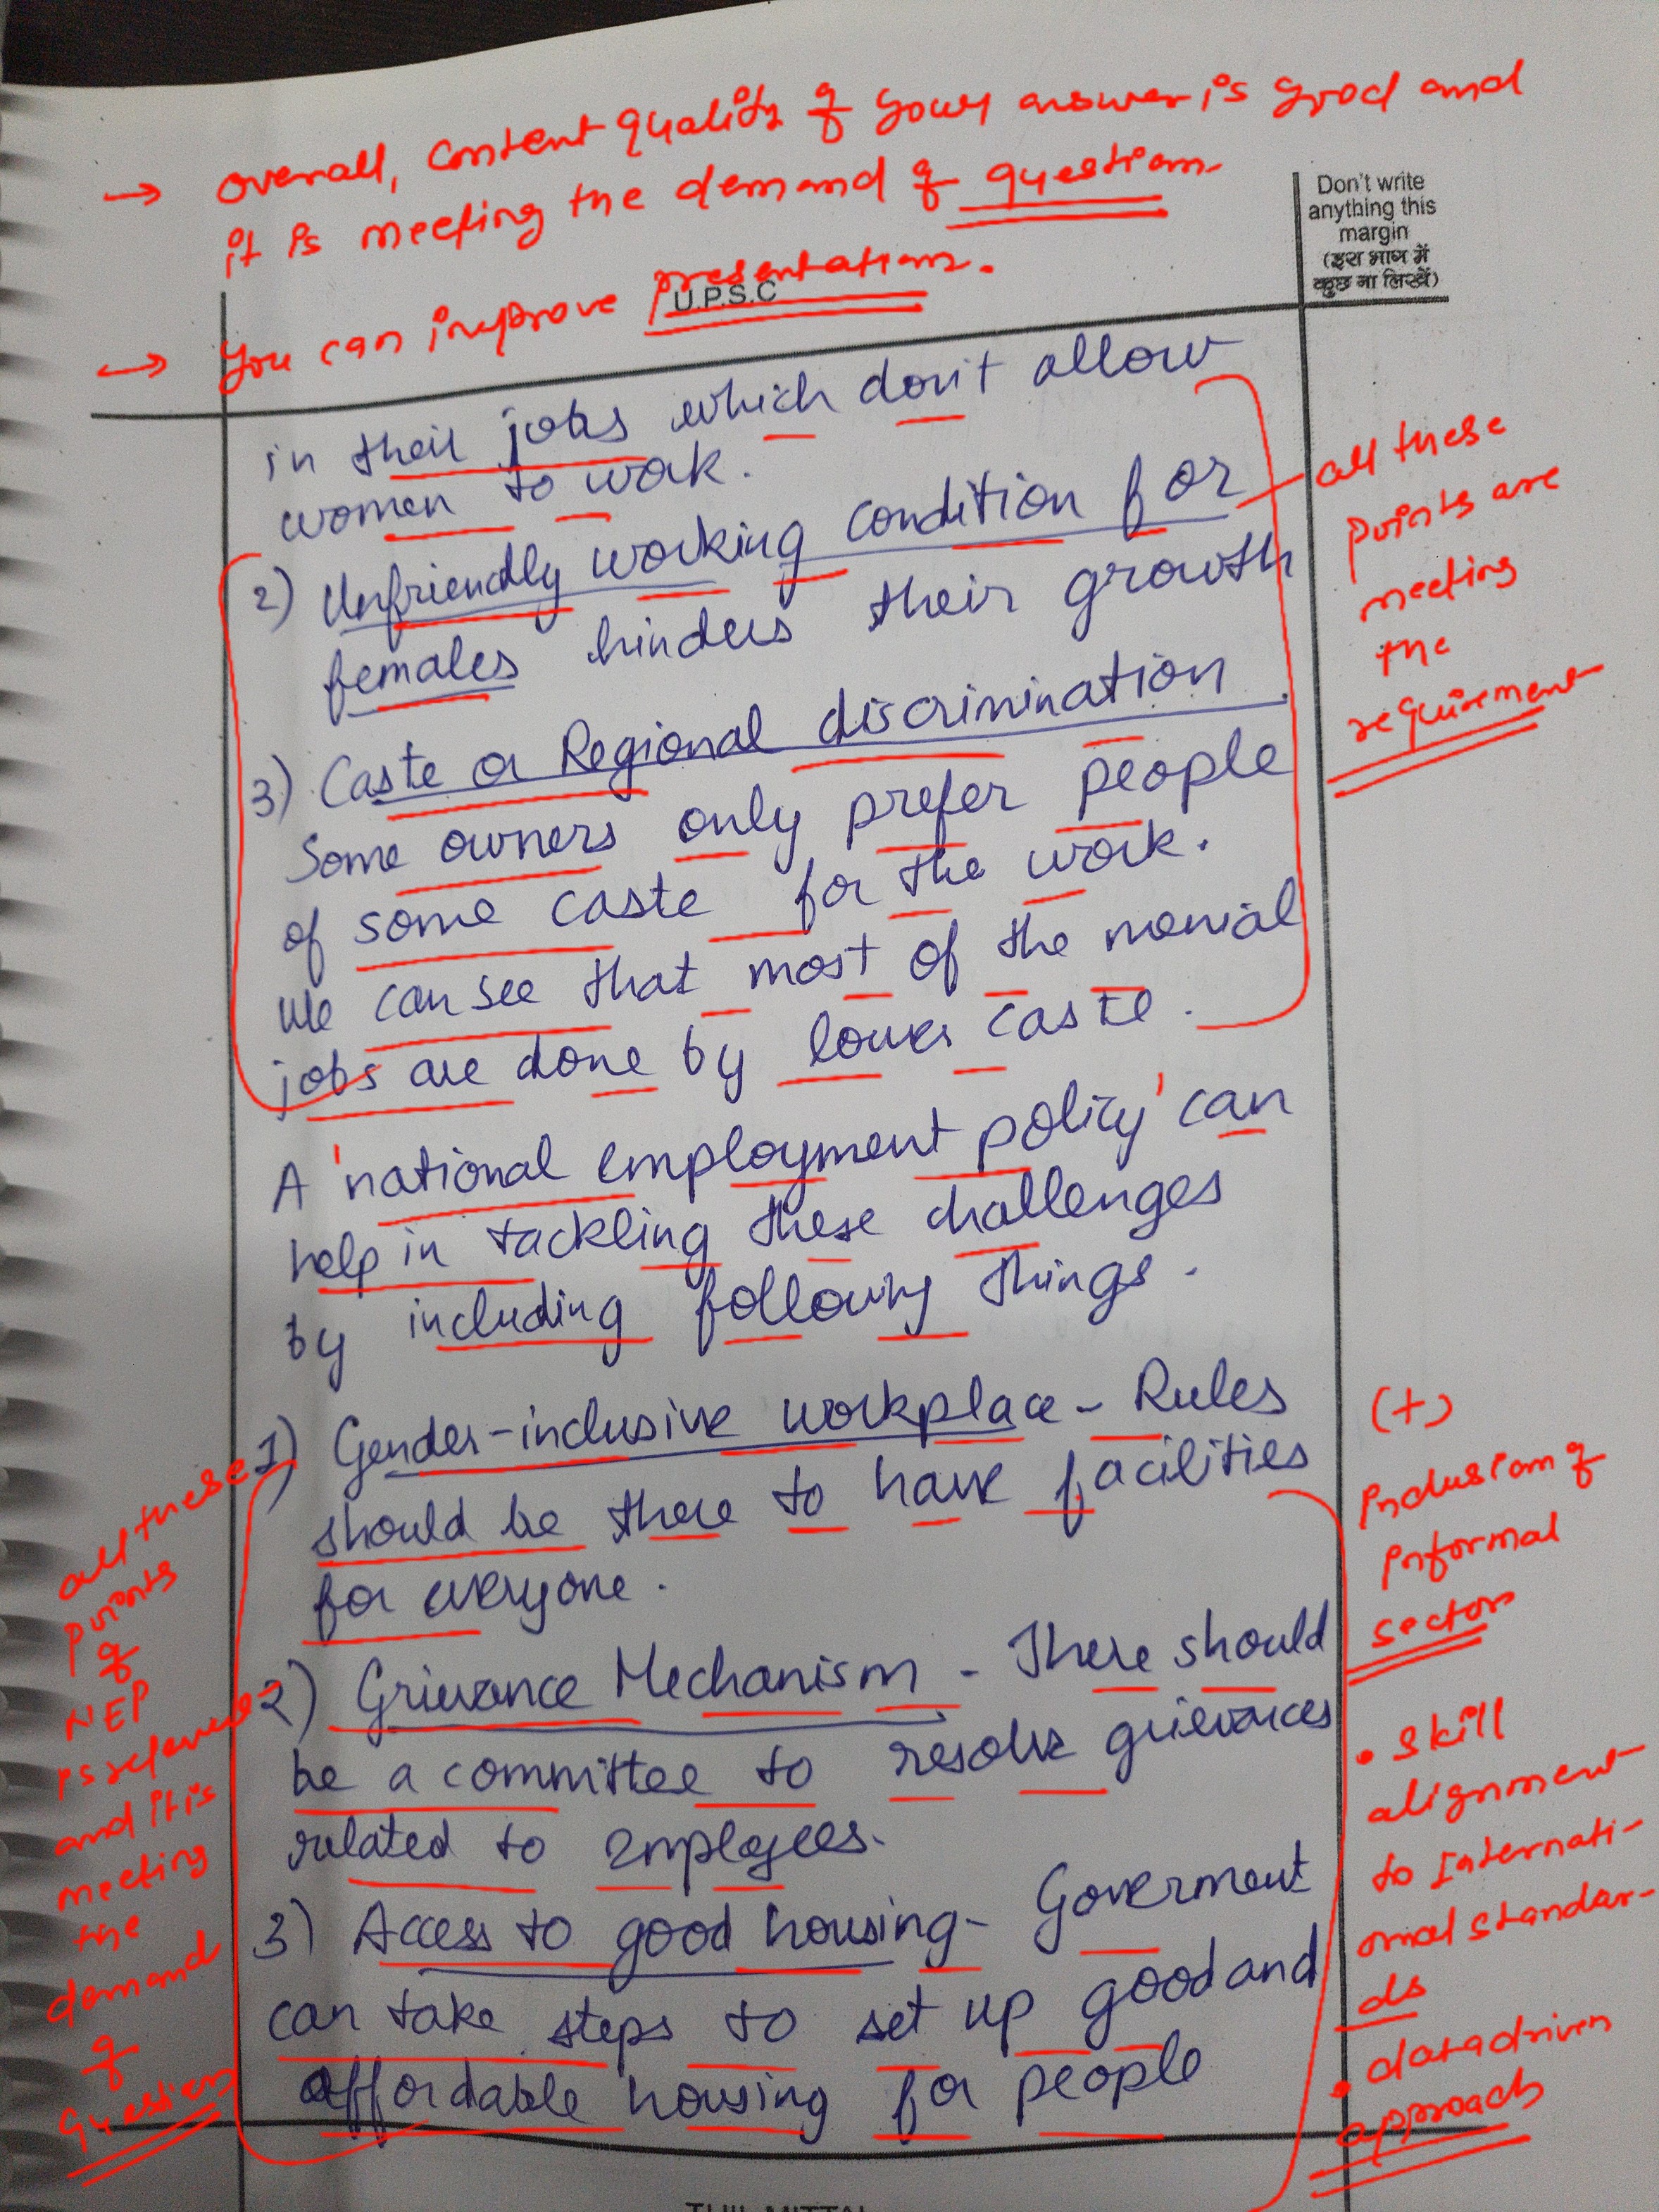 → overall, content quality of your answer is good and
it is meeting the demand of question.
→ You can improve presentation.
U.P.S.C
Don't write
anything this
margin
(इस भाग में
कुछ ना लिखें)
in their jobs which don't allow
women to work.
2) Unfriendly working condition for
females hinders their growth
3) Caste or Regional discrimination
Some owners only prefer people
of some caste for the work.
We can see that most of the menial
jobs are done by lower caste.
all these
points are
meeting
the
requirement
A 'national employment policy' can
help in tackling these challenges
by including following things.
1) Gender-inclusive workplace - Rules
should be there to have facilities
for everyone.
2) Grievance Mechanism - There should
be a committee to resolve grievances
related to employees.
3) Access to good housing - Goverment
can take steps to set up good and
affordable housing for people
all these
points
of
NEP
is relevent
and it is
meeting
the
demand
of
question
(+)
inclusion of
informal
sector
• skill
alignment
to Internati-
onal standar-
ds
• data driven
approach